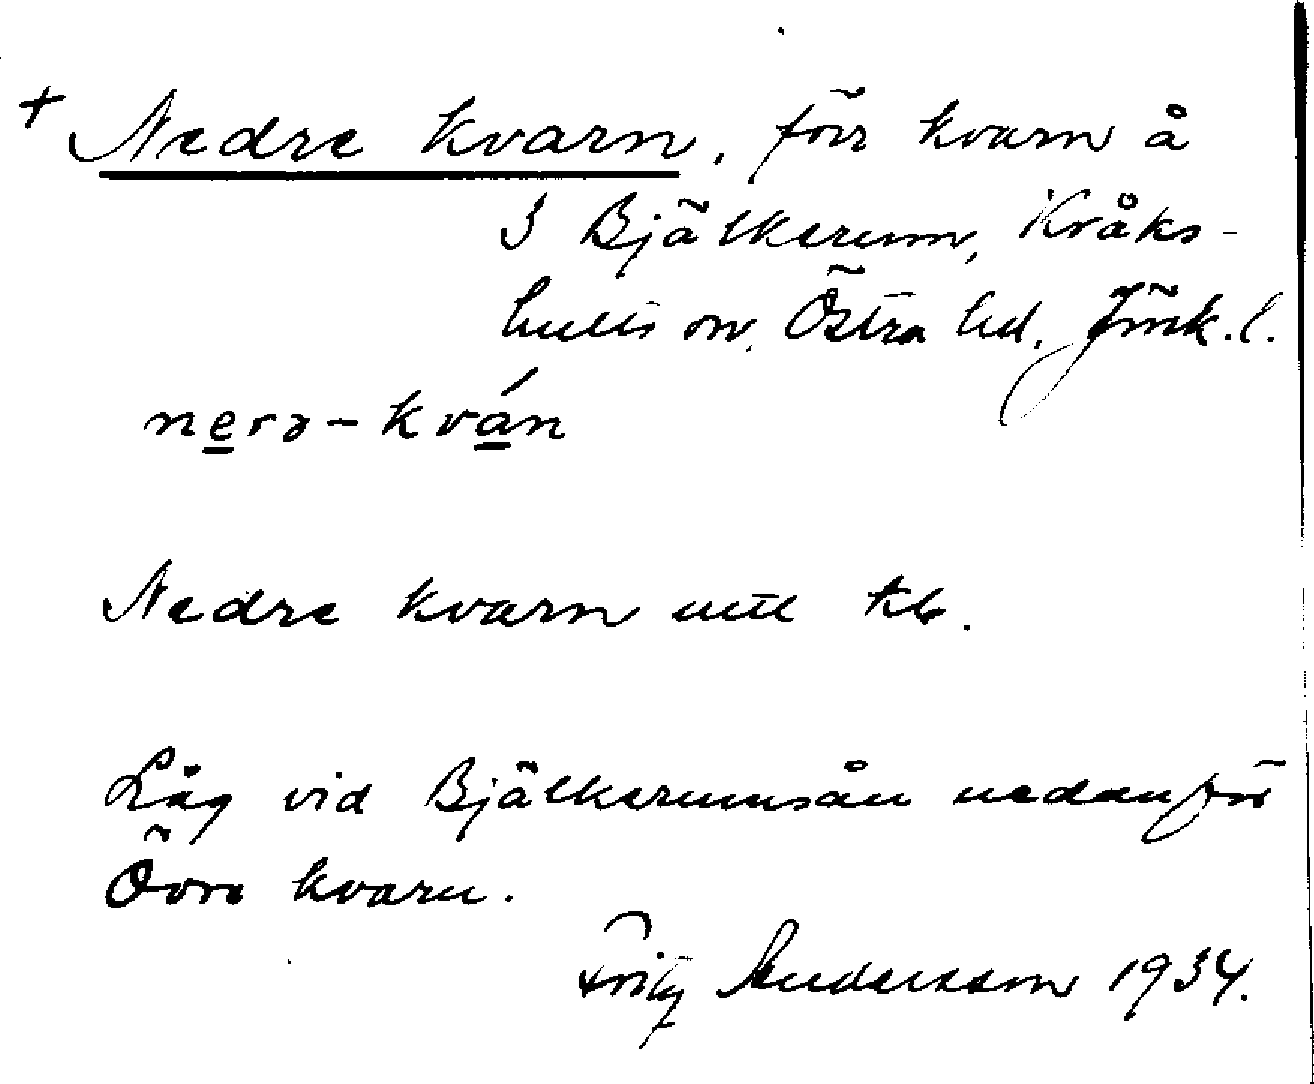 + Nedre kvarn, förr kvarn å
S Bjälkerum, Kråks-
hults sn, Östra hd, Jönk. l.
nerə-kván
Nedre kvarn uttl
Låg vid Bjälkerumsån nedanför
Övre kvarn.
Fritz Andersson 1934.